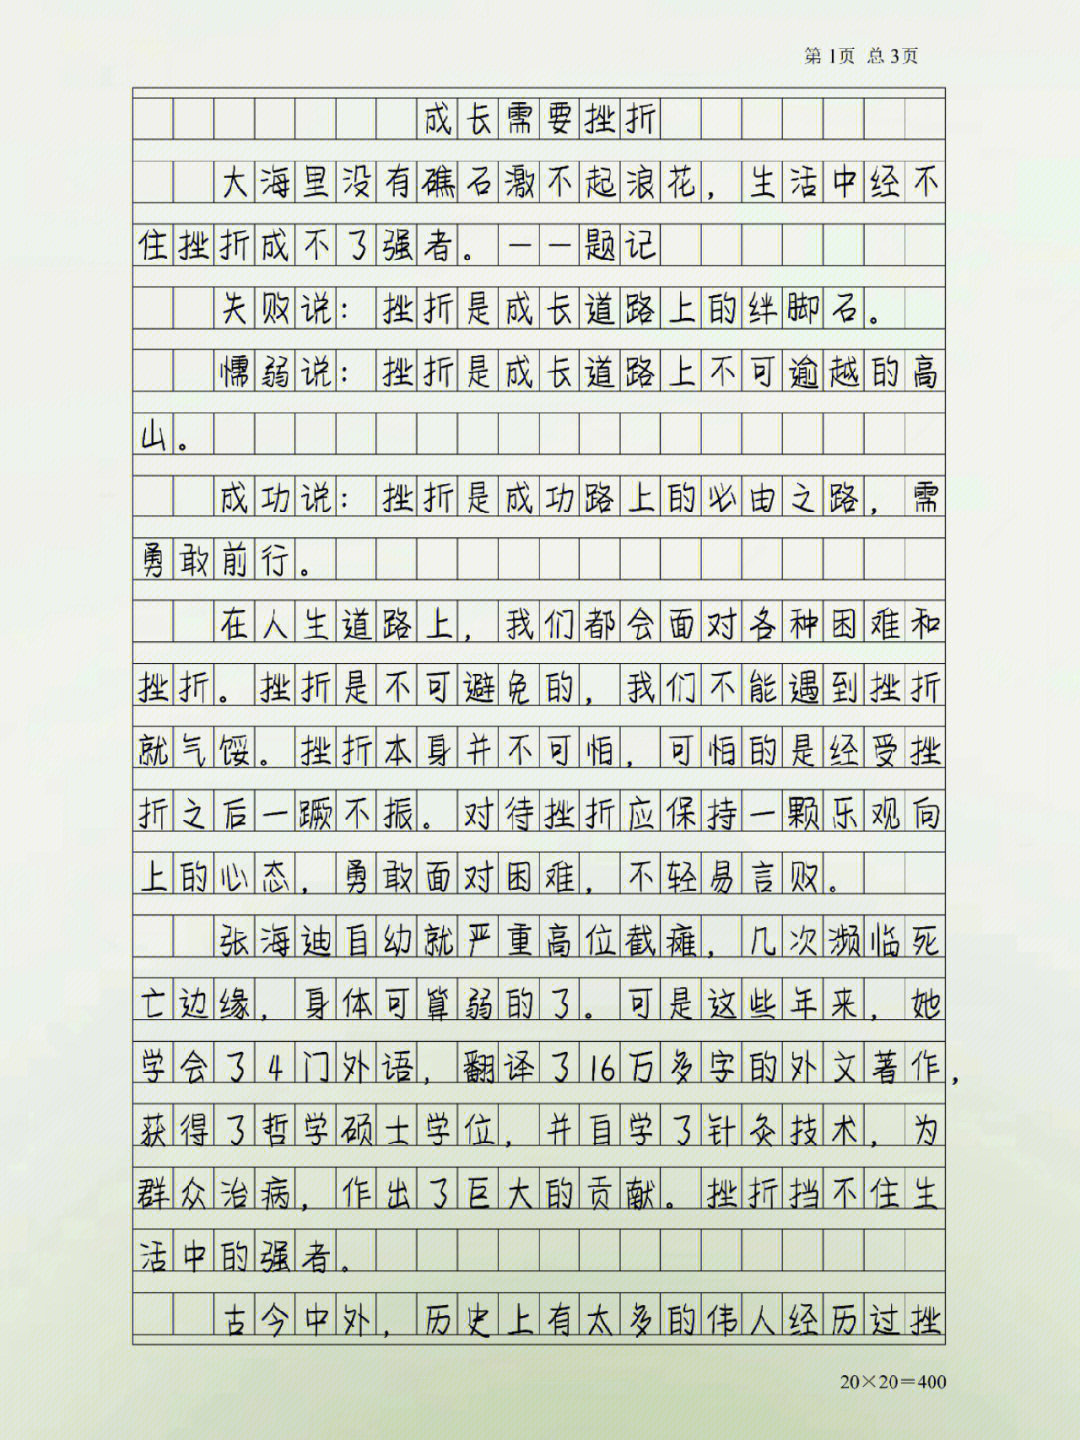 第1页 总3页
成长需要挫折
大海里没有礁石激不起浪花，生活中经不
住挫折成不了强者。——题记
失败说：挫折是成长道路上的绊脚石。
懦弱说：挫折是成长道路上不可逾越的高
山。
成功说：挫折是成功路上的必由之路，需
勇敢前行。
在人生道路上，我们都会面对各种困难和
挫折。挫折是不可避免的，我们不能遇到挫折
就气馁。挫折本身并不可怕，可怕的是经受挫
折之后一蹶不振。对待挫折应保持一颗乐观向
上的心态，勇敢面对困难，不轻易言败。
张海迪自幼就严重高位截瘫，几次濒临死
亡边缘，身体可算弱的了。可是这些年来，她
学会了4门外语，翻译了16万多字的外文著作，
获得了哲学硕士学位，并自学了针灸技术，为
群众治病，作出了巨大的贡献。挫折挡不住生
活中的强者。
古今中外，历史上有太多的伟人经历过挫
20×20=400